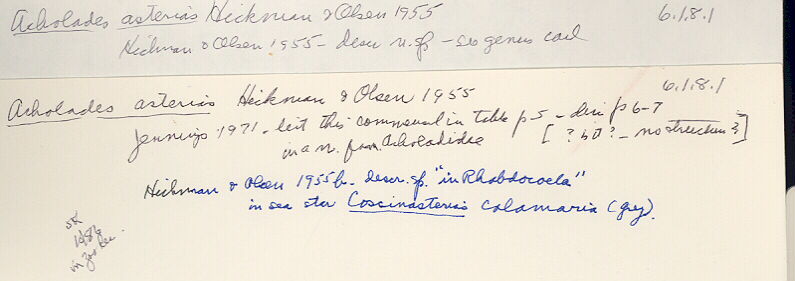 Acholades asterias Hickman & Olsen 1955 6.1.8.1
Hickman & Olsen 1955 - descr n. sp. - see genus card
Acholades asterias Hickman & Olsen 1955 6.1.8.1
Jennings 1971 - list this commensal in table p. 5 - disc p 6-7
in a n. fam Acholadidae [? b ? - no structures]
Hickman & Olsen 1955b - descr. sp. "in Rhabdocoela"
in sea star Coscinasterias calamaria (gray).
1982
in Zoo Rec.